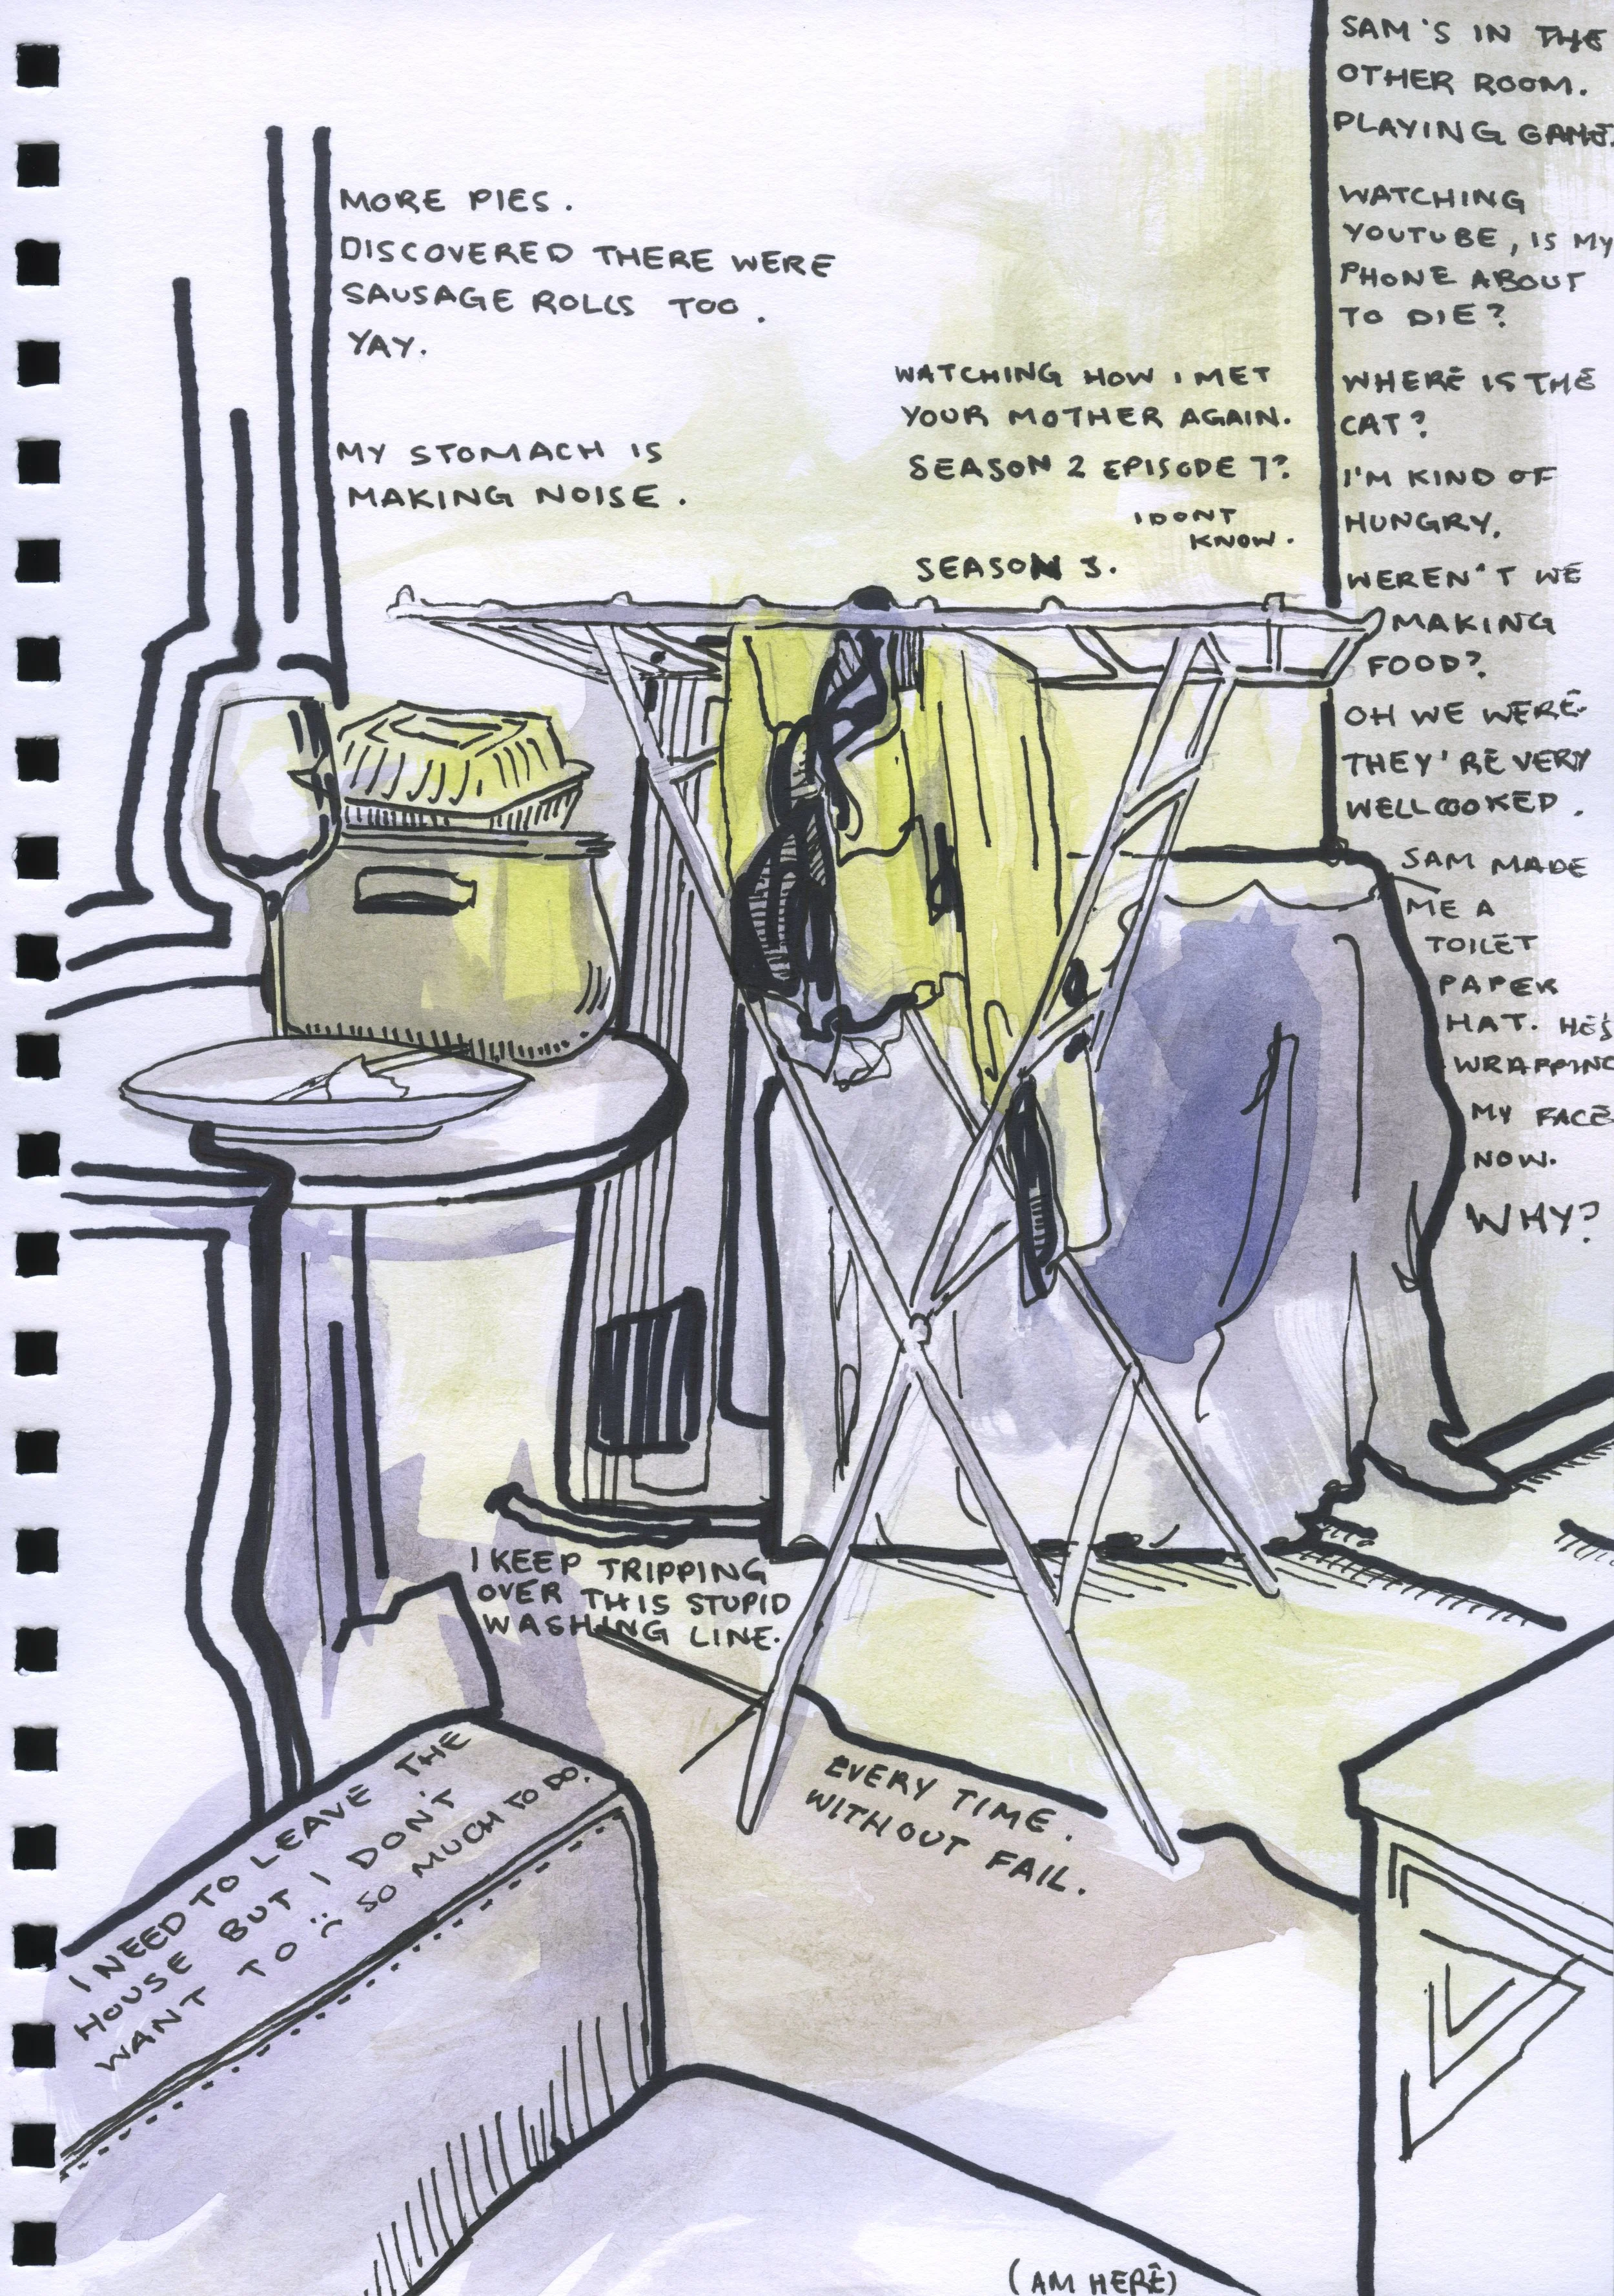 MORE PIES.
DISCOVERED THERE WERE
SAUSAGE ROLLS TOO.
YAY.
MY STOMACH IS
MAKING NOISE.
WATCHING HOW I MET
YOUR MOTHER AGAIN.
SEASON 2 EPISODE 7?
I DONT
KNOW.
SEASON 3.
SAM'S IN THE
OTHER ROOM.
PLAYING GAME.
WATCHING
YOUTUBE, IS MY
PHONE ABOUT
TO DIE?
WHERE IS THE
CAT?
I'M KIND OF
HUNGRY.
WEREN'T WE
MAKING
FOOD?
OH WE WERE.
THEY'RE VERY
WELL COOKED.
SAM MADE
ME A
TOILET
PAPER
HAT. HE'S
WRAPPING
MY FACE
NOW.
WHY?
I KEEP TRIPPING
OVER THIS STUPID
WASHING LINE.
EVERY TIME.
WITHOUT FAIL.
I NEED TO LEAVE THE
HOUSE BUT I DON'T
WANT TO :( SO MUCH TO DO.
(AM HERE)